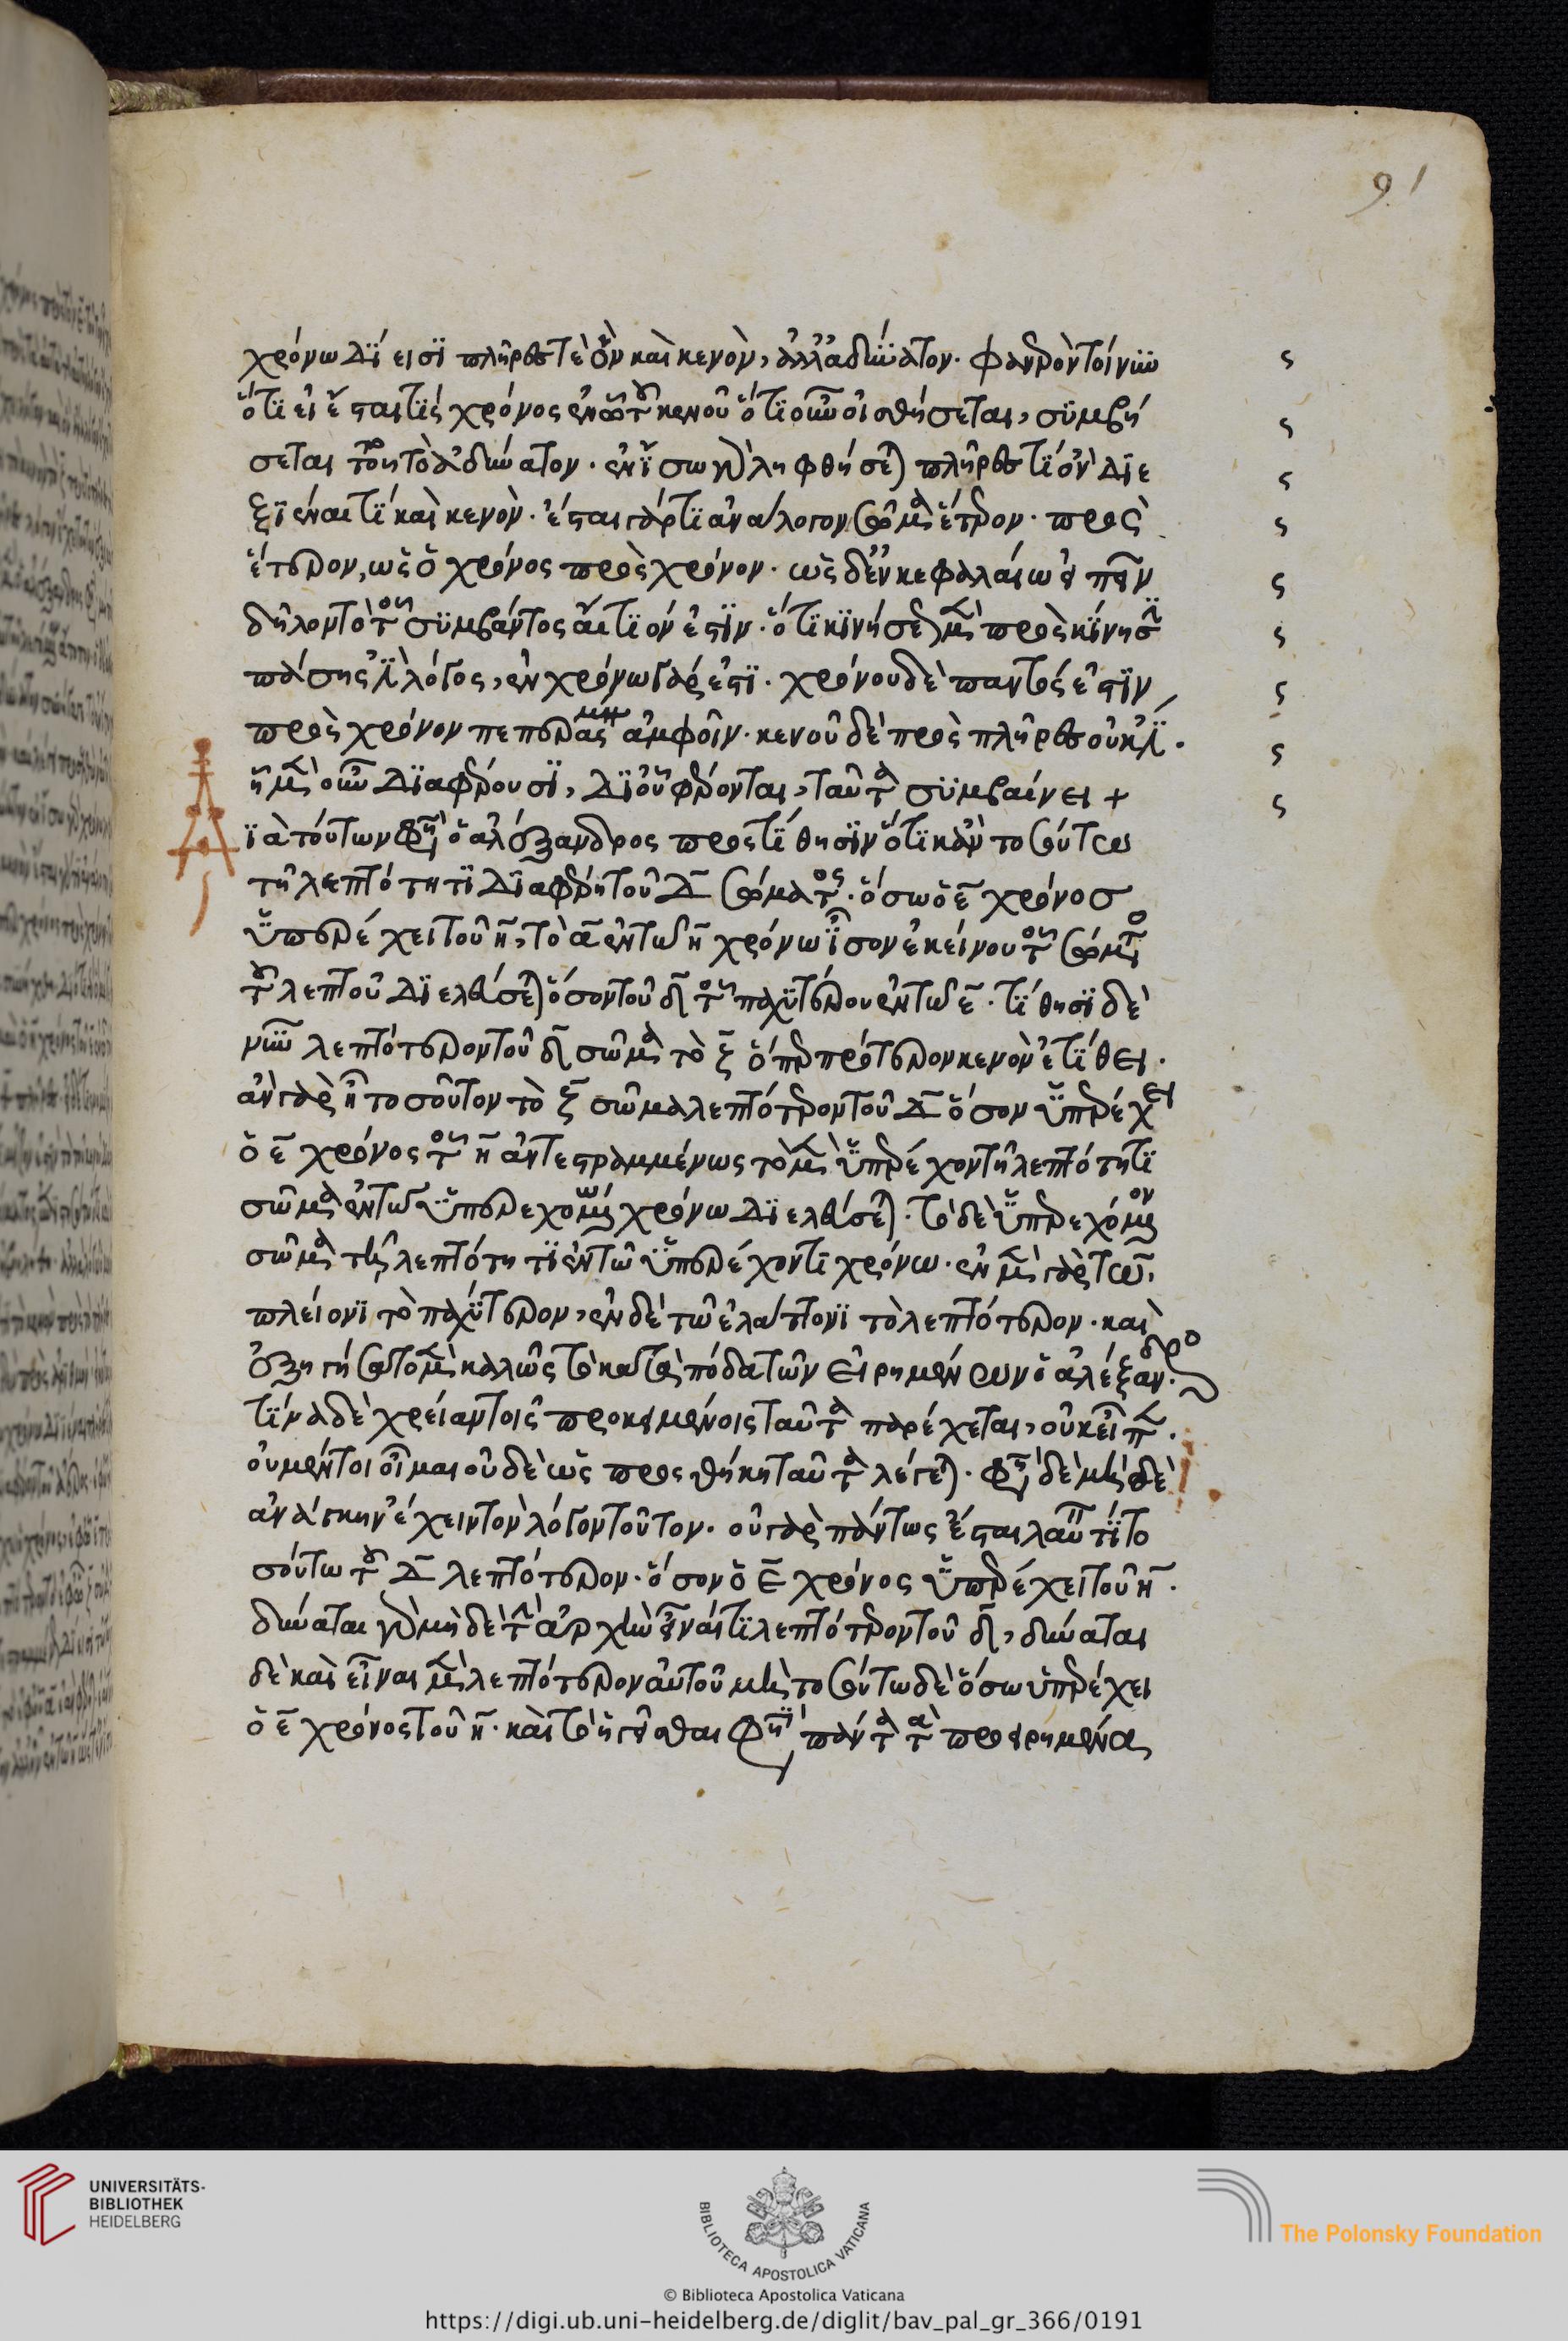 91
χρόνω δίεισι πλῆρές τε ὂν καὶ κενὸν, ἀλλ' ἀδύνατον. φανερὸν τοίνυν
ὅτι εἰ ἔσται τις χρόνος ἐν ᾧ τοῦ κενοῦ ὁτιοῦν οἰσθήσεται, συμβή
σεται τοῦτο τὸ ἀδύνατον. ἐν ἴσω γὰρ ληφθήσεται πλῆρές τι ὂν διε
ξιέναι τι καὶ κενὸν. ἔσται γάρ τι ἀνάλογον σῶμα ἕτερον πρὸς
ἕτερον, ὡς ὁ χρόνος πρὸς χρόνον. ὡς δ' ἐν κεφαλαίω εἰπεῖν
δῆλον τὸ τοῦ συμβαίντος αἴτιον ἐστὶν. ὅτι κινήσεως μὲν πρὸς κίνησιν
πάσης ἐστὶ λόγος, ἐν χρόνω γάρ ἐστι. χρόνου δὲ παντός ἐστιν
πρὸς χρόνον πεπερασμένων ἀμφοῖν. κενοῦ δὲ πρὸς πλῆρες οὐκ ἔστι.
ᾗ μὲν οὖν διαφέρουσι, δι' οὗ φέρονται, ταῦτα συμβαίνει +
Διὰ τούτων φησὶ ὁ αλέξανδρος προστίθησιν ὅτι κἂν τοσούτω
τῆ λεπτότητι διαφέρη τοῦ Δ σώματος. ὅσω ὁ ε χρόνοσ
ὑπερέχει τοῦ η, τὸ α ἐν τῶ η χρόνω ἴσον ἐκείνου τοῦ σώματος
τοῦ λεπτοῦ διελεύσεται ὅσον τοῦ δ τοῦ παχυτέρου ἐν τῶ ε. τίθησι δὲ
νῦν λεπτότερον τοῦ δ σῶμα τὸ ζ ὅπερ πρότερον κενὸν ἐτίθει.
ἂν γὰρ ᾖ τοσοῦτον τὸ ζ σῶμα λεπτότερον τοῦ Δ ὅσον ὑπερέχει
ὁ ε χρόνος τοῦ η ἀντεστραμμένως τὸ μὲν ὑπερέχον τῆ λεπτότητι
σῶμα ἐν τῶ ὑπερεχομένω χρόνω διελεύσεται. τὸ δὲ ὑπερεχόμενον
σῶμα τῆ λεπτότητι ἐν τῶ ὑπερέχοντι χρόνω. ἐν μὲν γὰρ τῶ
πλείονι τὸ παχύτερον, ἐν δὲ τῶ ἐλάττονι τὸ λεπτότερον. καὶ
ἐξηγήσατο μὲν καλῶς τὸ κατὰ πόδα τῶν εἰρημένων ὁ ἀλέξανδρος.
τίνα δὲ χρείαν τοῖς προκειμένοις ταῦτα παρέχεται, οὐκ εἶπεν.
οὐ μέντοι οἶμαι οὐδὲ ὡς προσθήκη ταῦτα λέγεται. φησὶ δὲ μηδὲ
ἀνάγκην ἔχειν τὸν λόγον τοῦτον. οὐ γὰρ πάντως ἔσται λαβεῖν τι το
σούτω τοῦ Δ λεπτότερον. ὅσον ὁ ε χρόνος ὑπερέχει τοῦ η.
δύναται γὰρ μὴ δὲ τὴν ἀρχὴν εἶναί τι λεπτότερον τοῦ δ, δύναται
δὲ καὶ εἶναι μὲν λεπτότερον αὐτοῦ μὴ τοσούτω δὲ ὅσω ὑπερέχει
ὁ ε χρόνος τοῦ η. καὶ τὸ ἡγεῖσθαι φησὶ πάντα τὰ προειρημένα
UNIVERSITÄTS-
BIBLIOTHEK
HEIDELBERG
BIBLIOTECA APOSTOLICA VATICANA
The Polonsky Foundation
© Biblioteca Apostolica Vaticana
https://digi.ub.uni-heidelberg.de/diglit/bav_pal_gr_366/0191